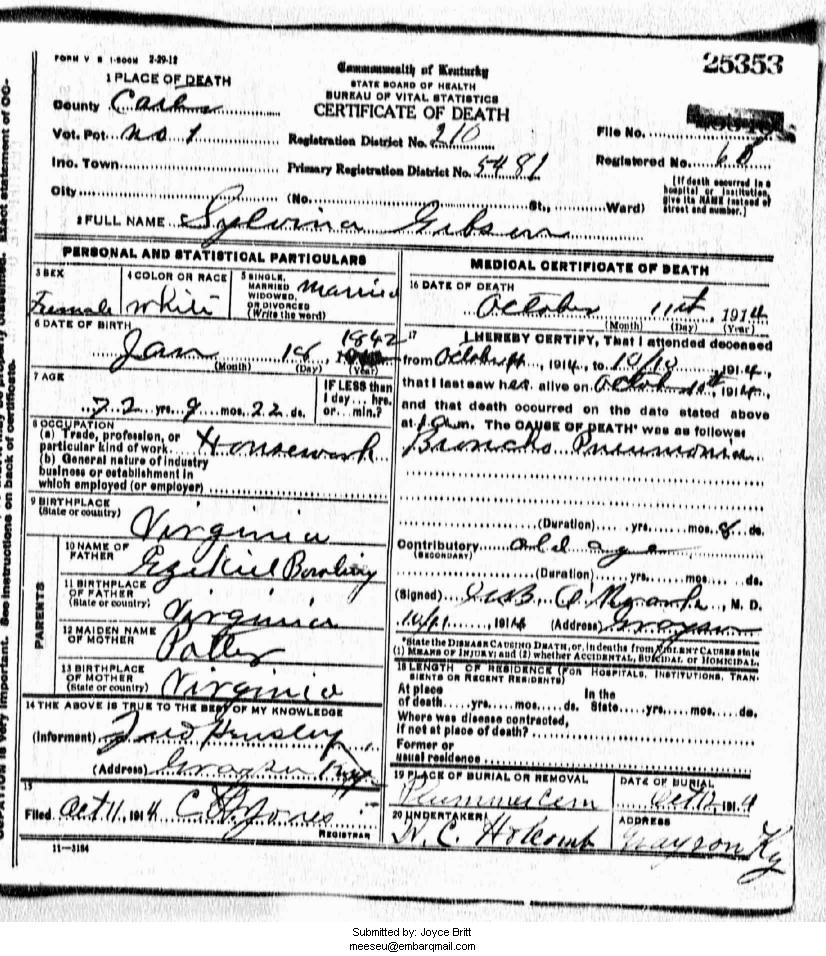 FORM V S 1-500M 2-29-12
25353
Commonwealth of Kentucky
STATE BOARD OF HEALTH
BUREAU OF VITAL STATISTICS
CERTIFICATE OF DEATH
1 PLACE OF DEATH
County Carter
Vot. Pct. No 1
Registration District No. 210
File No.
Inc. Town
Primary Registration District No. 5481
Registered No. 60
City
(No. St., Ward)
[If death occurred in a hospital or institution, give its NAME instead of street and number.]
2 FULL NAME Sylvina Gibson
PERSONAL AND STATISTICAL PARTICULARS
3 SEX
Female
4 COLOR OR RACE
White
5 SINGLE, MARRIED WIDOWED, OR DIVORCED (Write the word)
Married
6 DATE OF BIRTH
Jan 18 1842
(Month) (Day) (Year)
7 AGE
72 yrs. 9 mos. 22 ds.
IF LESS than 1 day... hrs. or... min.?
8 OCCUPATION
(a) Trade, profession, or particular kind of work Housework
(b) General nature of industry
business or establishment in
which employed (or employer)
9 BIRTHPLACE
(State or country) Virginia
PARENTS
10 NAME OF FATHER Ezekiel Bowling
11 BIRTHPLACE OF FATHER
(State or country) Virginia
12 MAIDEN NAME OF MOTHER Potter
13 BIRTHPLACE OF MOTHER
(State or country) Virginia
14 THE ABOVE IS TRUE TO THE BEST OF MY KNOWLEDGE
(Informant) Fred Hensley
(Address) Grayson Ky
15
Filed Oct 11, 1914 Jones
REGISTRAR
11-3184
MEDICAL CERTIFICATE OF DEATH
16 DATE OF DEATH
October 11th, 1914
(Month) (Day) (Year)
17 I HEREBY CERTIFY, That I attended deceased
from October, 1914, to 10/10, 1914,
that I last saw her alive on, 1914,
and that death occurred on the date stated above
at 1 a.m. The CAUSE OF DEATH* was as follows:
Broncho Pneumonia
(Duration) yrs. mos. 8 ds.
Contributory old age
(SECONDARY)
(Duration) yrs. mos. ds.
(Signed), M. D.
10/11, 1914 (Address) Grayson
*State the DISEASE CAUSING DEATH, or, in deaths from VIOLENT CAUSES state
(1) MEANS OF INJURY; and (2) whether ACCIDENTAL, SUICIDAL or HOMICIDAL.
18 LENGTH OF RESIDENCE (FOR HOSPITALS, INSTITUTIONS, TRANSIENTS OR RECENT RESIDENTS)
At place of death yrs. mos. ds. In the State yrs. mos. ds.
Where was disease contracted,
if not at place of death?
Former or
usual residence
19 PLACE OF BURIAL OR REMOVAL
Plummer Cem
DATE OF BURIAL
Oct 12, 1914
20 UNDERTAKER
H. C. Holcomb
ADDRESS
Grayson Ky
Submitted by: Joyce Britt
meeseu@embarqmail.com